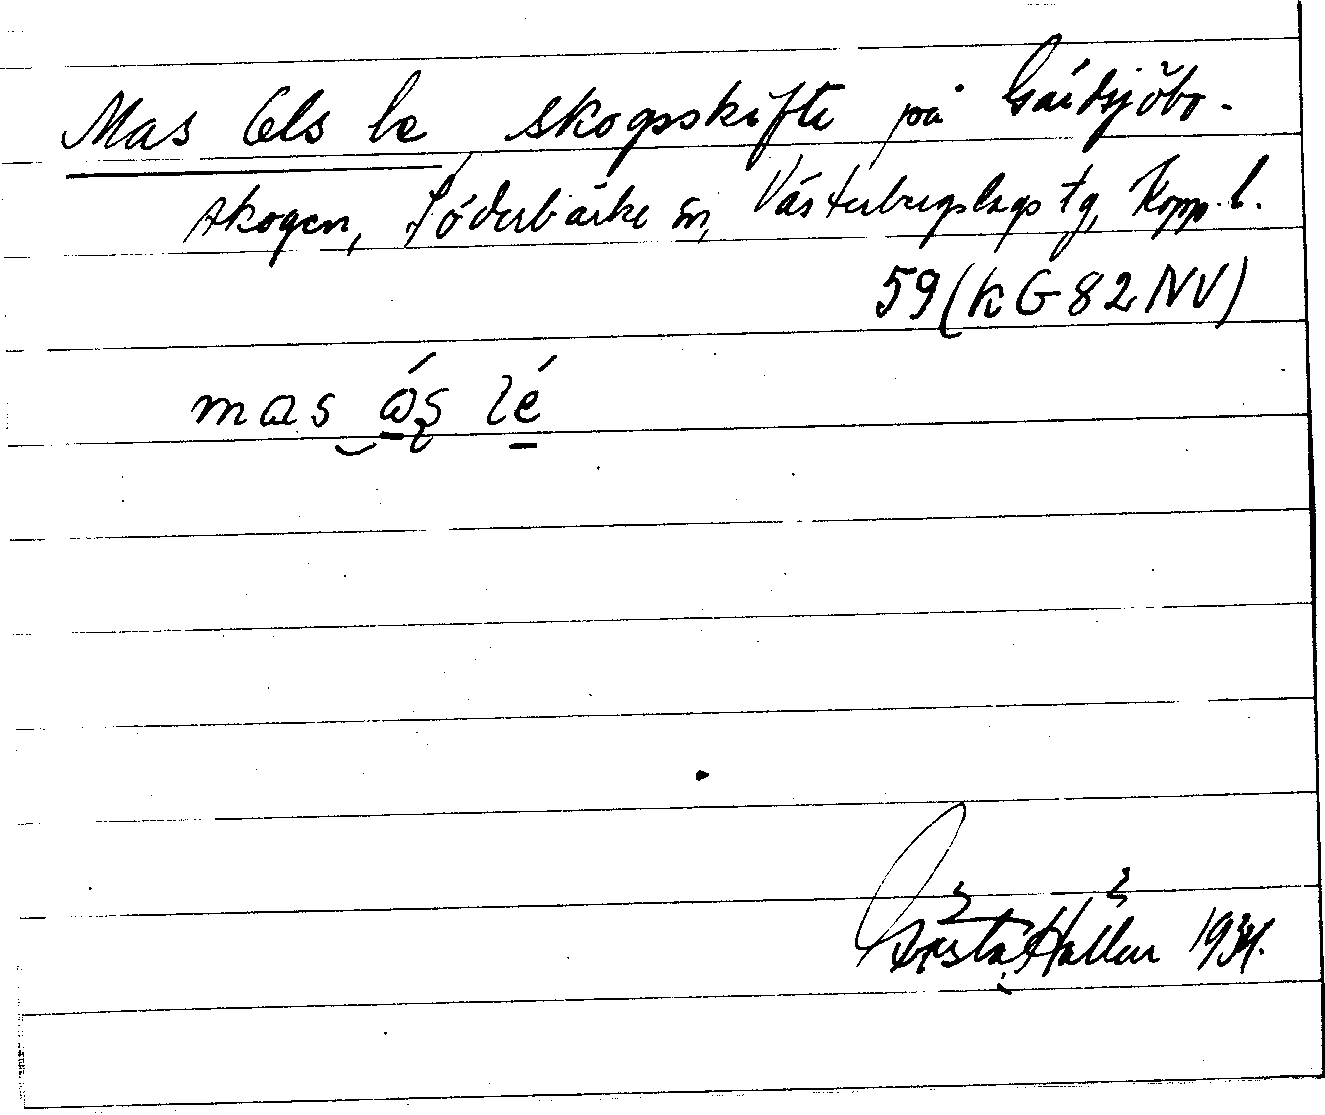 Mas Ols le skogsskifte på Gårdsjöbo-
skogen, Söderbärke sn, Västerbergslags tg, Kopp. l.
59 (KG 82 NV)
mas
Gösta Hallén 1934.